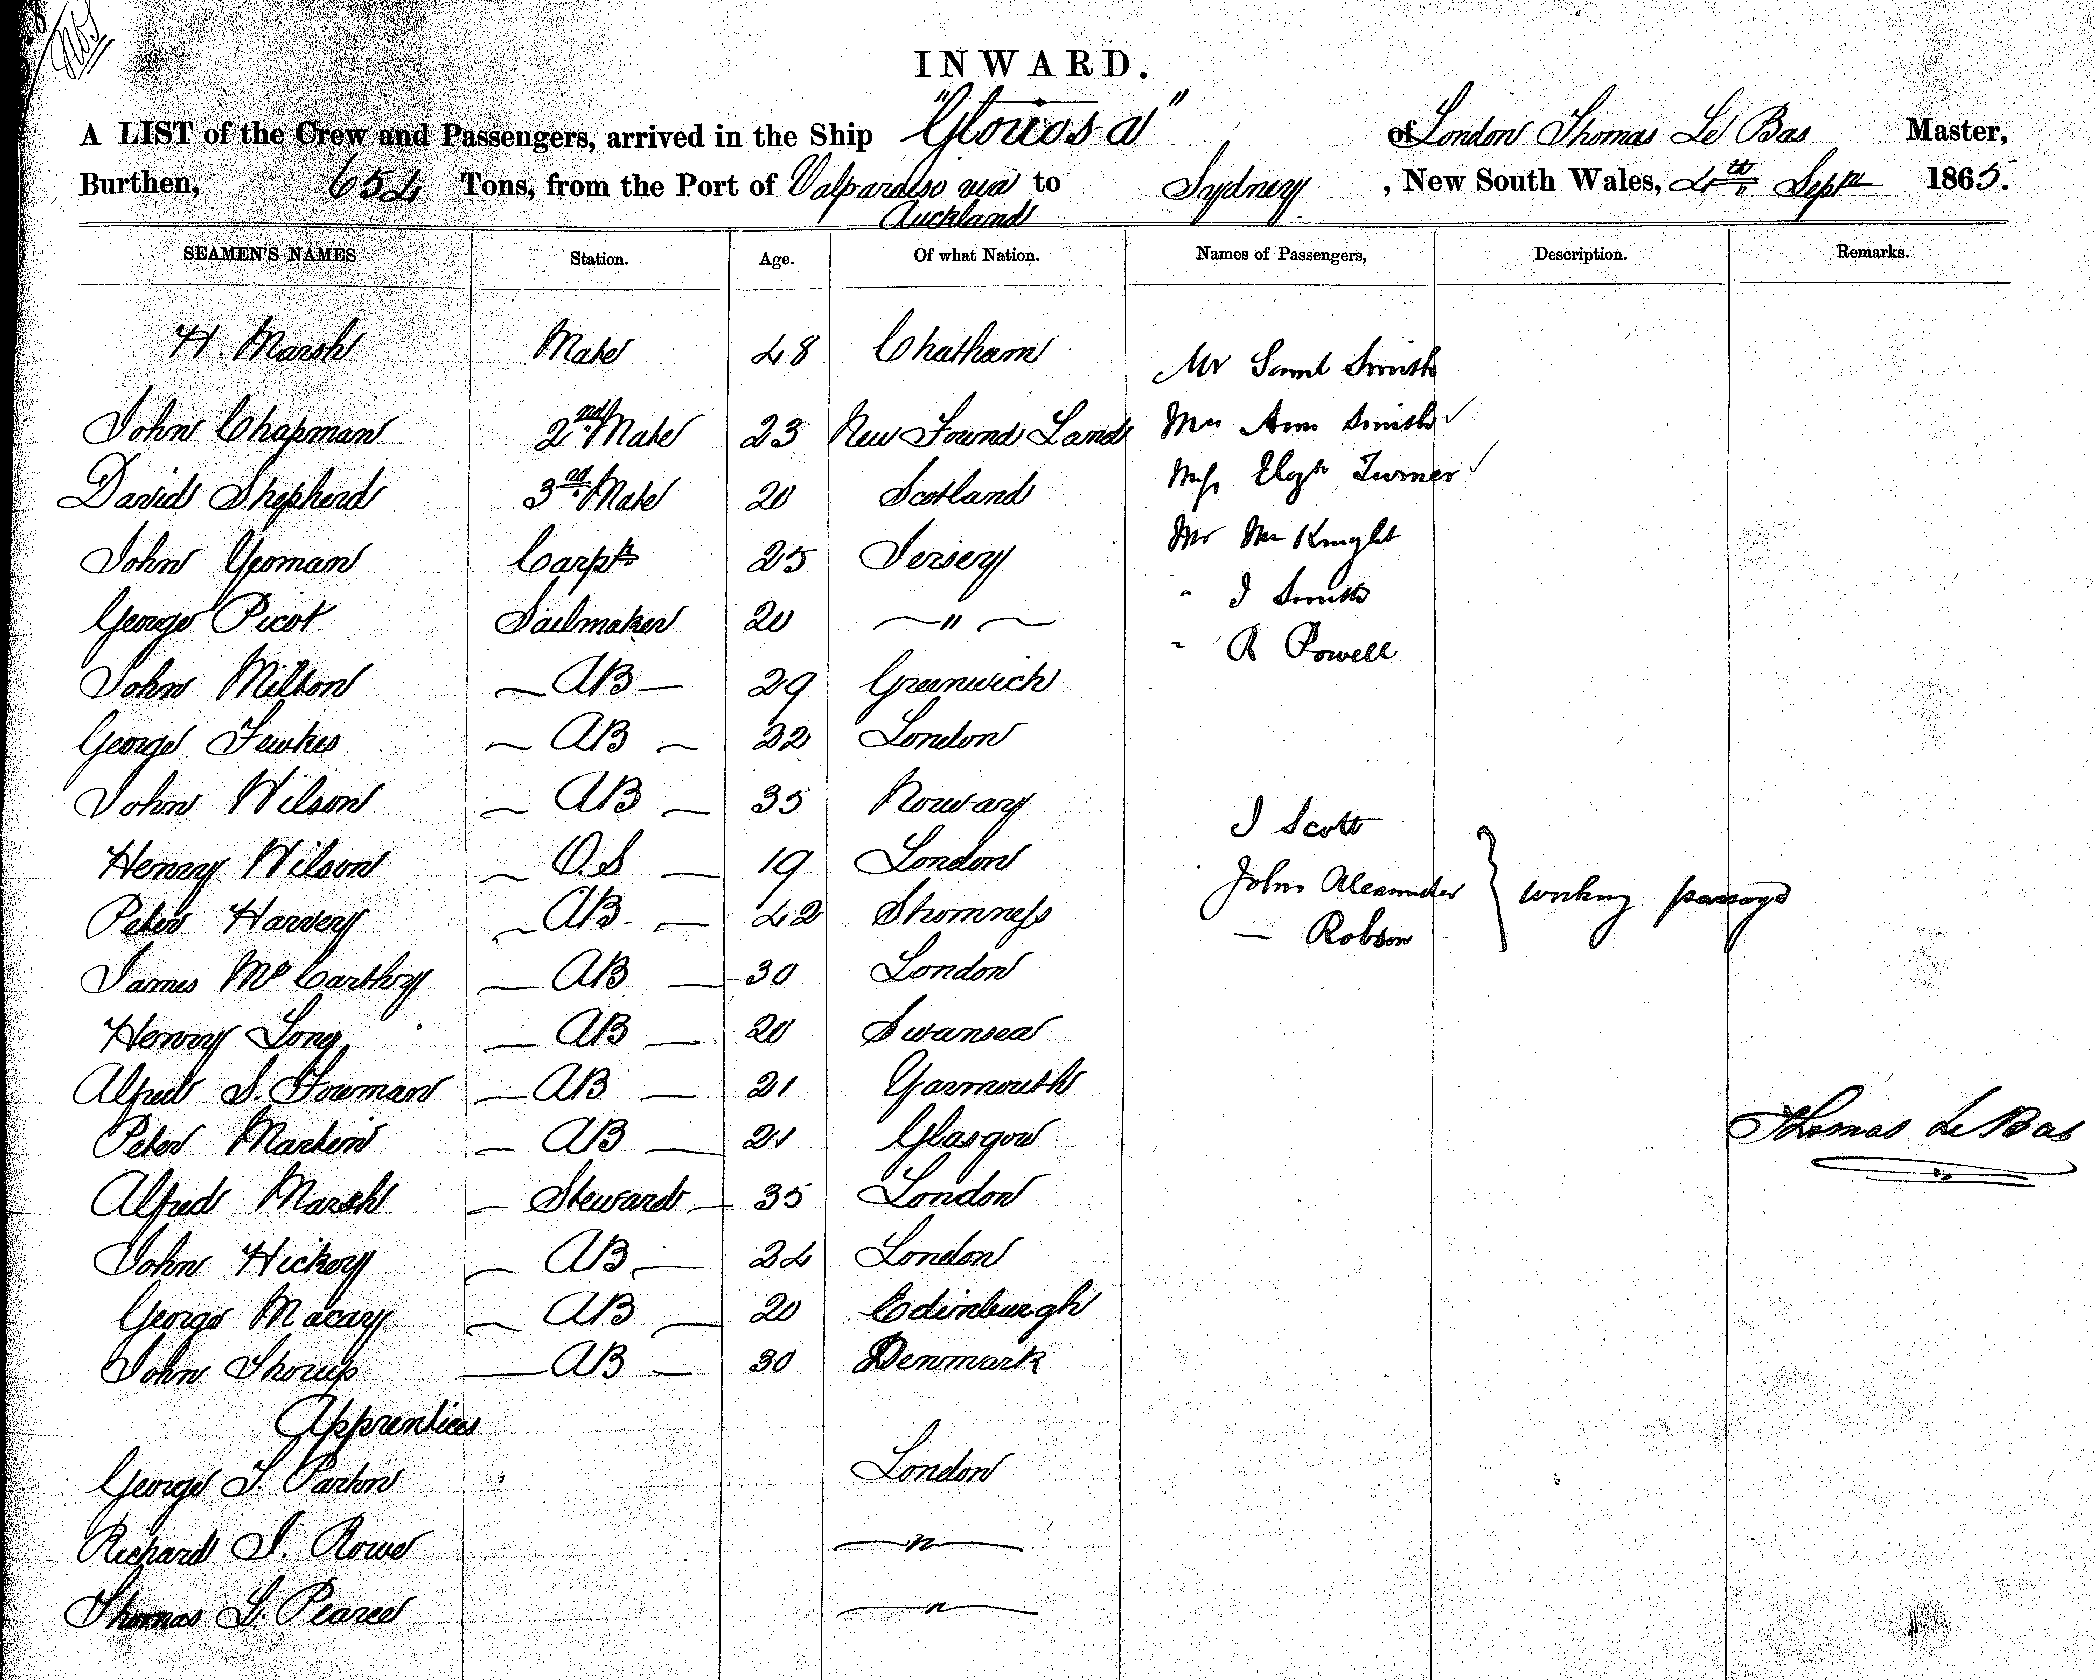 INWARD.
A LIST of the Crew and Passengers, arrived in the Ship "Gloriosa" of London Thomas Le Bas Master,
Burthen, 654 Tons, from the Port of Valparaiso via to Sydney , New South Wales, 4th Septr 1865.
Auckland
SEAMEN'S NAMES Station. Age. Of what Nation. Names of Passengers, Description. Remarks.
H. Marsh Mate 48 Chatham Mr Saml Smith
John Chapman 2nd Mate 23 New Found Land Mrs Ann Smith ✓
David Shepherd 3rd Mate 20 Scotland Miss Elizth Turner ✓
John Yeoman Carptr 25 Jersey Mr Mc Knight
George Picot Sailmaker 20 — " — " J Smith
John Milton — AB — 29 Greenwich " R Powell
George Fewkes — AB — 22 London
John Wilson — AB — 35 Norway J Scott
Henry Wilson — O.S — 19 London John Alexander } working passage
Peter Harvey — AB — 42 Stromness — Robson
James McCarthy — AB — 30 London
Henry Long — AB — 20 Swansea
Alfred S. Fowman — AB — 21 Yarmouth
Peter Martin — AB — 21 Glasgow Thomas Le Bas
Alfred Marsh — Steward — 35 London
John Hickey — AB — 24 London
George Macay — AB — 20 Edinburgh
John Thorup — AB — 30 Denmark
Apprentices
George T. Parton London
Richard J. Rowe — " —
Thomas L. Pearce — " —